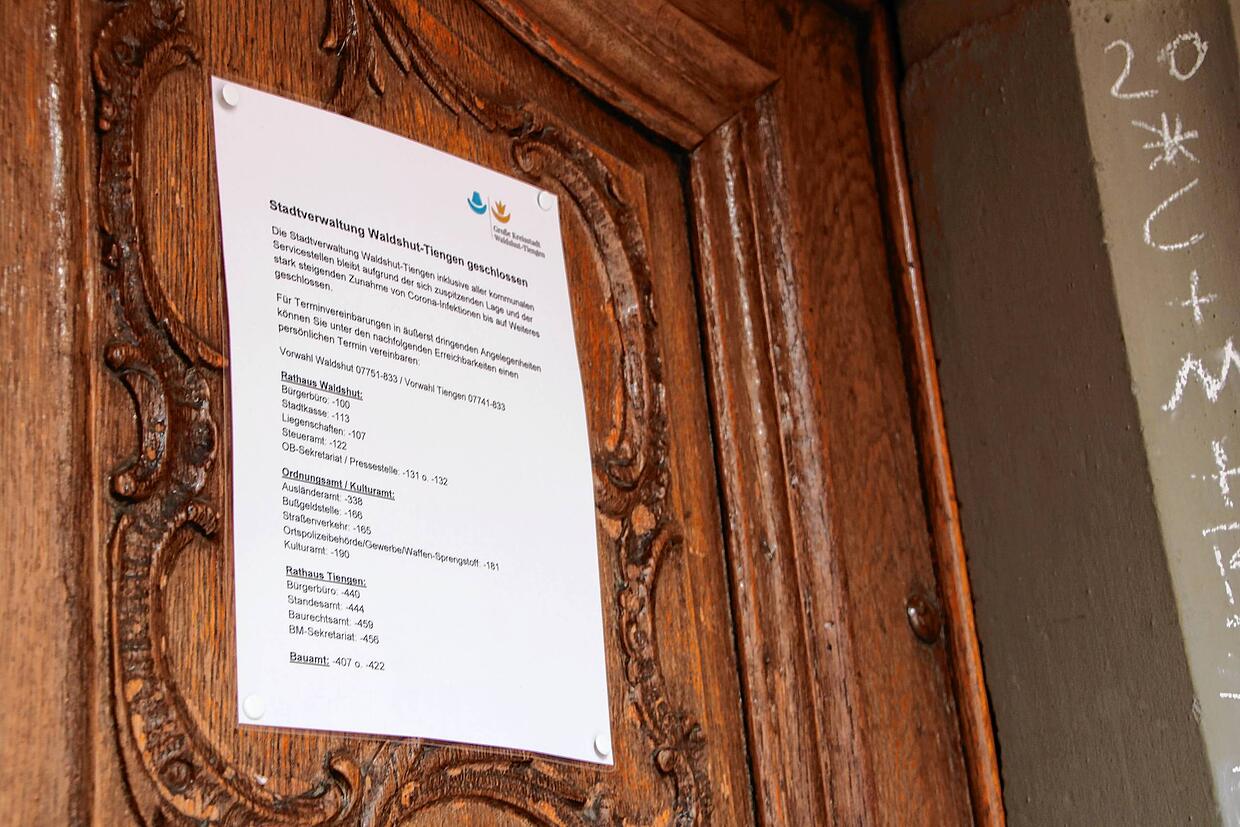 Große Kreisstadt
Waldshut-Tiengen
Stadtverwaltung Waldshut-Tiengen geschlossen
Die Stadtverwaltung Waldshut-Tiengen inklusive aller kommunalen
Servicestellen bleibt aufgrund der sich zuspitzenden Lage und der
stark steigenden Zunahme von Corona-Infektionen bis auf Weiteres
geschlossen.
Für Terminvereinbarungen in äußerst dringenden Angelegenheiten
können Sie unter den nachfolgenden Erreichbarkeiten einen
persönlichen Termin vereinbaren:
Vorwahl Waldshut 07751-833 / Vorwahl Tiengen 07741-833
Rathaus Waldshut:
Bürgerbüro: -100
Stadtkasse: -113
Liegenschaften: -107
Steueramt: -122
OB-Sekretariat / Pressestelle: -131 o. -132
Ordnungsamt / Kulturamt:
Ausländeramt: -338
Bußgeldstelle: -166
Straßenverkehr: -165
Ortspolizeibehörde/Gewerbe/Waffen-Sprengstoff: -181
Kulturamt: -190
Rathaus Tiengen:
Bürgerbüro: -440
Standesamt: -444
Baurechtsamt: -459
BM-Sekretariat: -456
Bauamt: -407 o. -422
20*C+M+B